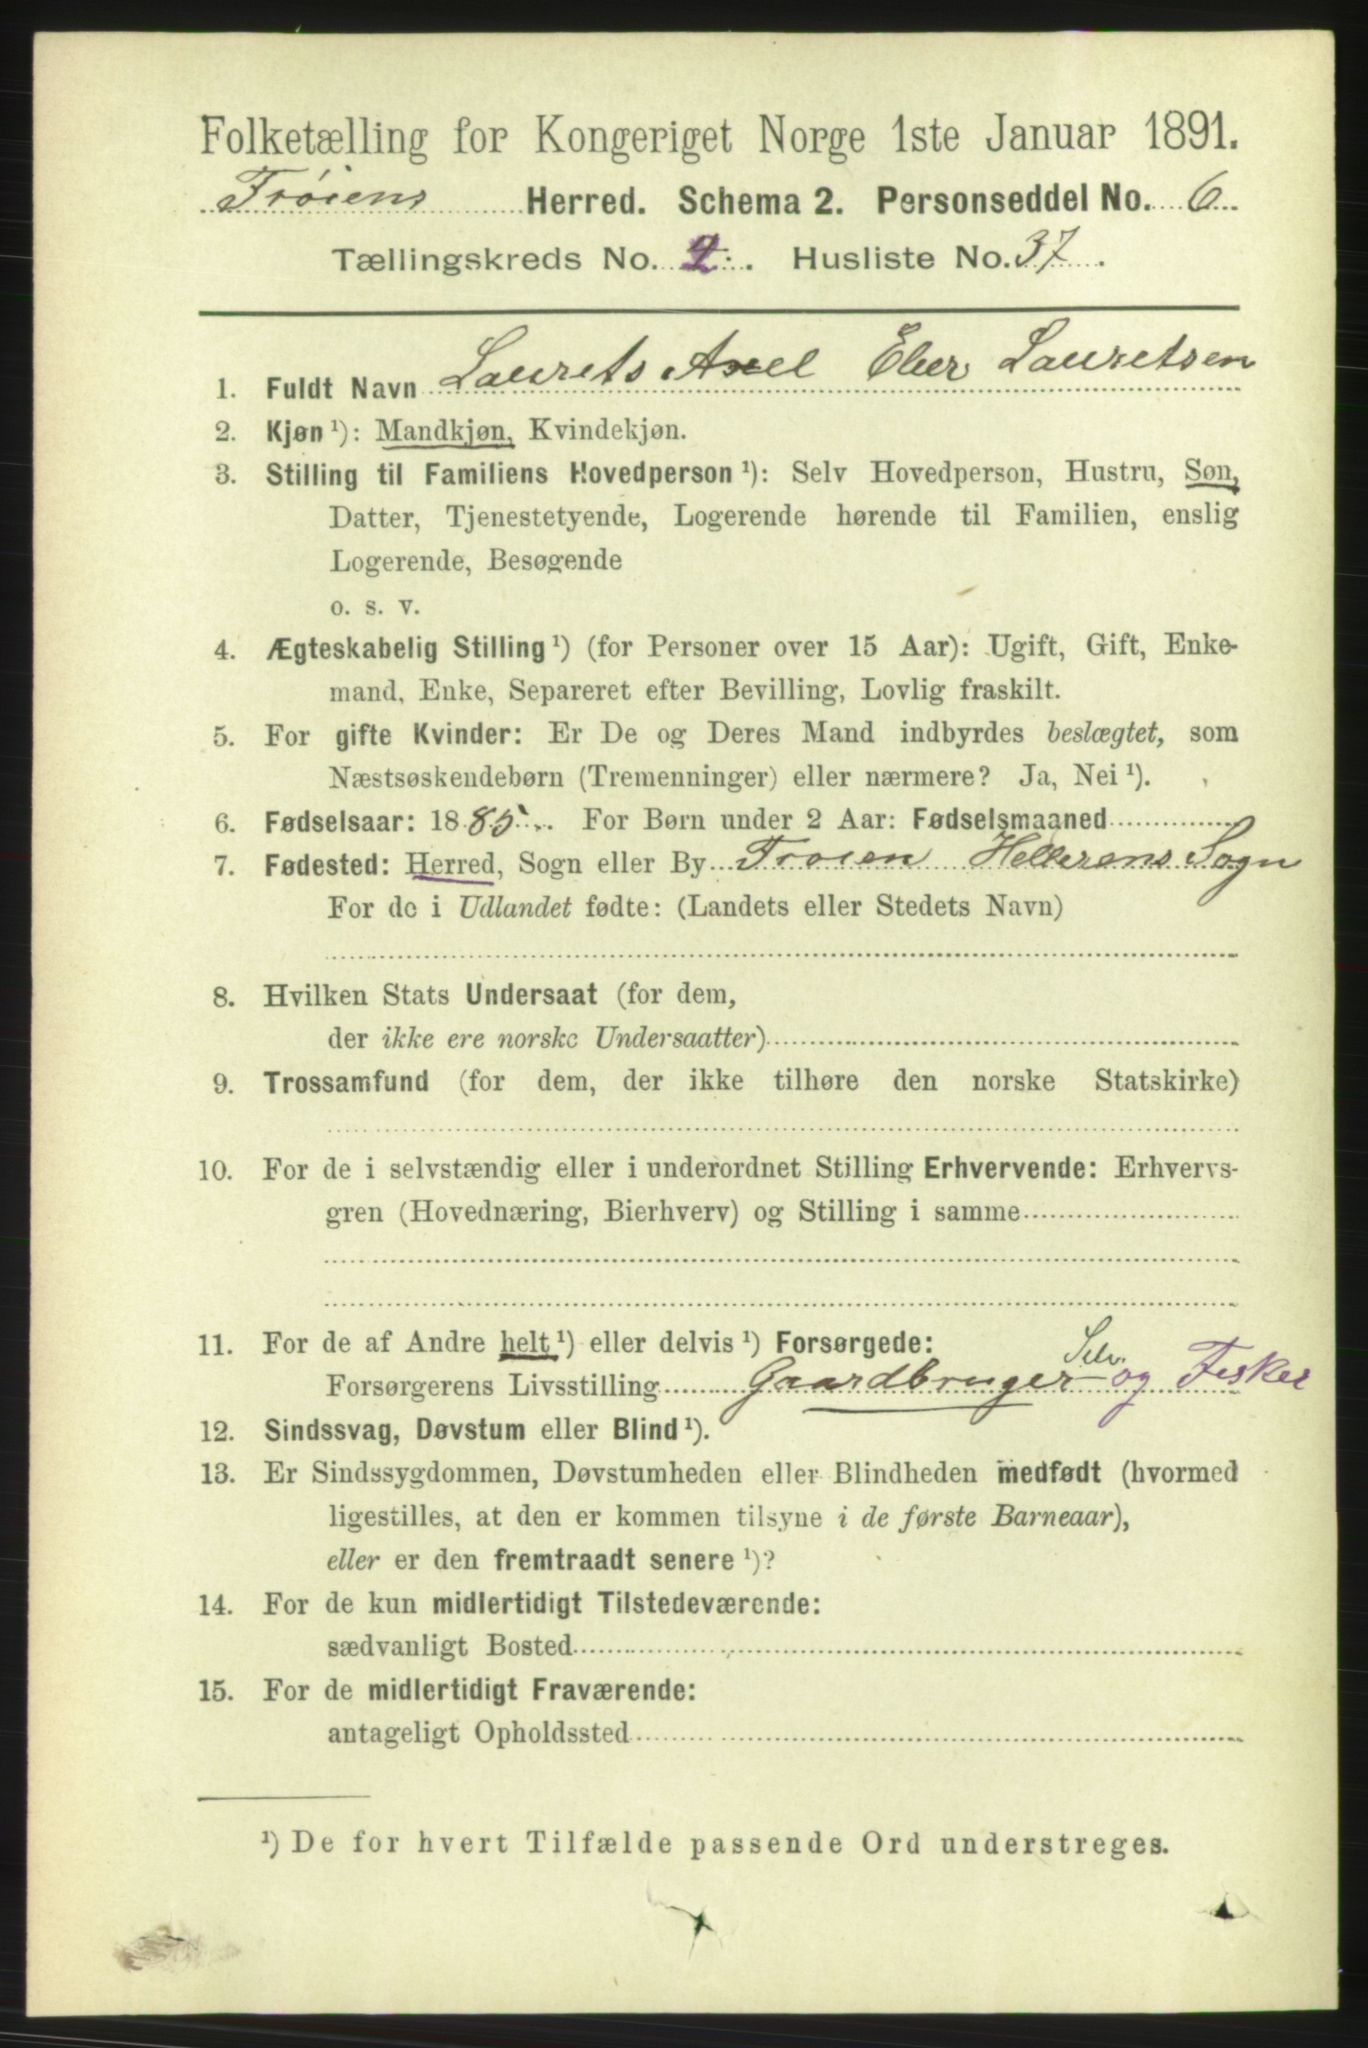 Folketælling for Kongeriget Norge 1ste Januar 1891.
Frøiens Herred. Schema 2. Personseddel No. 6
Tællingskreds No. 2. Husliste No. 37.
1. Fuldt Navn Laurets Axel Lauretsen
2. Kjøn ¹): Mandkjøn, Kvindekjøn.
3. Stilling til Familiens Hovedperson ¹): Selv Hovedperson, Hustru, Søn,
Datter, Tjenestetyende, Logerende hørende til Familien, enslig
Logerende, Besøgende
o. s. v.
4. Ægteskabelig Stilling ¹) (for Personer over 15 Aar): Ugift, Gift, Enke-
mand, Enke, Separeret efter Bevilling, Lovlig fraskilt.
5. For gifte Kvinder: Er De og Deres Mand indbyrdes beslægtet, som
Næstsøskendebørn (Tremenninger) eller nærmere? Ja, Nei ¹).
6. Fødselsaar: 1885. For Børn under 2 Aar: Fødselsmaaned
7. Fødested: Herred, Sogn eller By Froien Sogn
For de i Udlandet fødte: (Landets eller Stedets Navn)
8. Hvilken Stats Undersaat (for dem,
der ikke ere norske Undersaatter)
9. Trossamfund (for dem, der ikke tilhøre den norske Statskirke)
10. For de i selvstændig eller i underordnet Stilling Erhvervende: Erhvervs-
gren (Hovednæring, Bierhverv) og Stilling i samme
11. For de af Andre helt ¹) eller delvis ¹) Forsørgede:
Selv.
Forsørgerens Livsstilling Gaardbruger og Fisker
12. Sindssvag, Døvstum eller Blind ¹).
13. Er Sindssygdommen, Døvstumheden eller Blindheden medfødt (hvormed
ligestilles, at den er kommen tilsyne i de første Barneaar),
eller er den fremtraadt senere ¹)?
14. For de kun midlertidigt Tilstedeværende:
sædvanligt Bosted
15. For de midlertidigt Fraværende:
antageligt Opholdssted
¹) De for hvert Tilfælde passende Ord understreges.